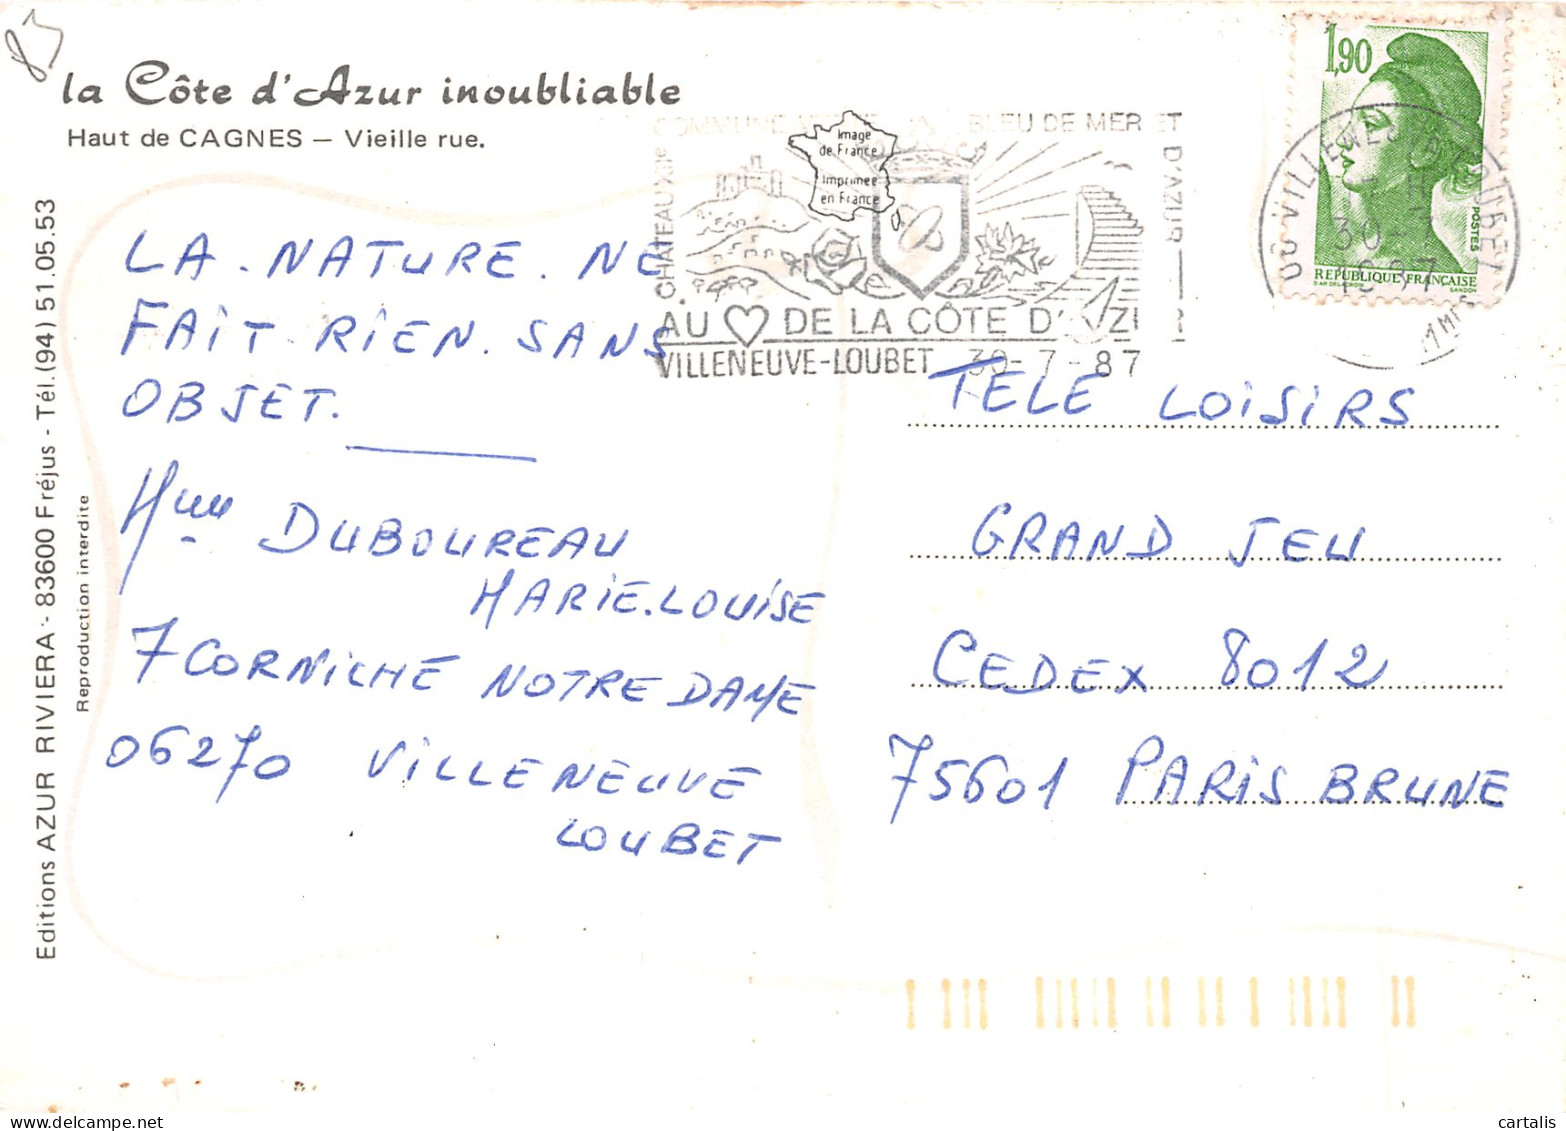 85
la Côte d'Azur inoubliable
Haut de CAGNES — Vieille rue.
Editions AZUR RIVIERA - 83600 Fréjus - Tél. (94) 51.05.53
Reproduction interdite
COMMUNE BLEU DE MER ET
D'AZUR
CHATEAU XIIe
Image
de France
Imprimée
en France
AU ♡ DE LA CÔTE D'AZUR
VILLENEUVE-LOUBET 30-7-87
1,90
POSTES
REPUBLIQUE FRANÇAISE
06 VILLENEUVE LOUBET
30-7
1987
LA. NATURE. NE
FAIT RIEN. SANS
OBJET.
Mme DUBOUREAU
MARIE.LOUISE
7 CORNICHE NOTRE DAME
06270 VILLENEUVE
LOUBET
TELE LOISIRS
GRAND JEU
CEDEX 8012
75601 PARIS BRUNE
cartalis